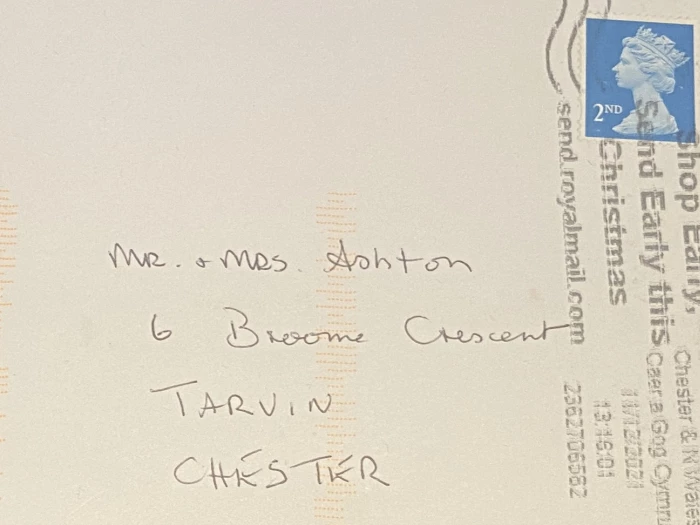 2ND
Mr. + Mrs. Ashton
6 Broome Crescent
TARVIN
CHESTER
Shop Early,
Send Early this
Christmas
send.royalmail.com
Chester & N Wales
Caer a Gog Cymru
11/12/2021
13:16:01
2362706582